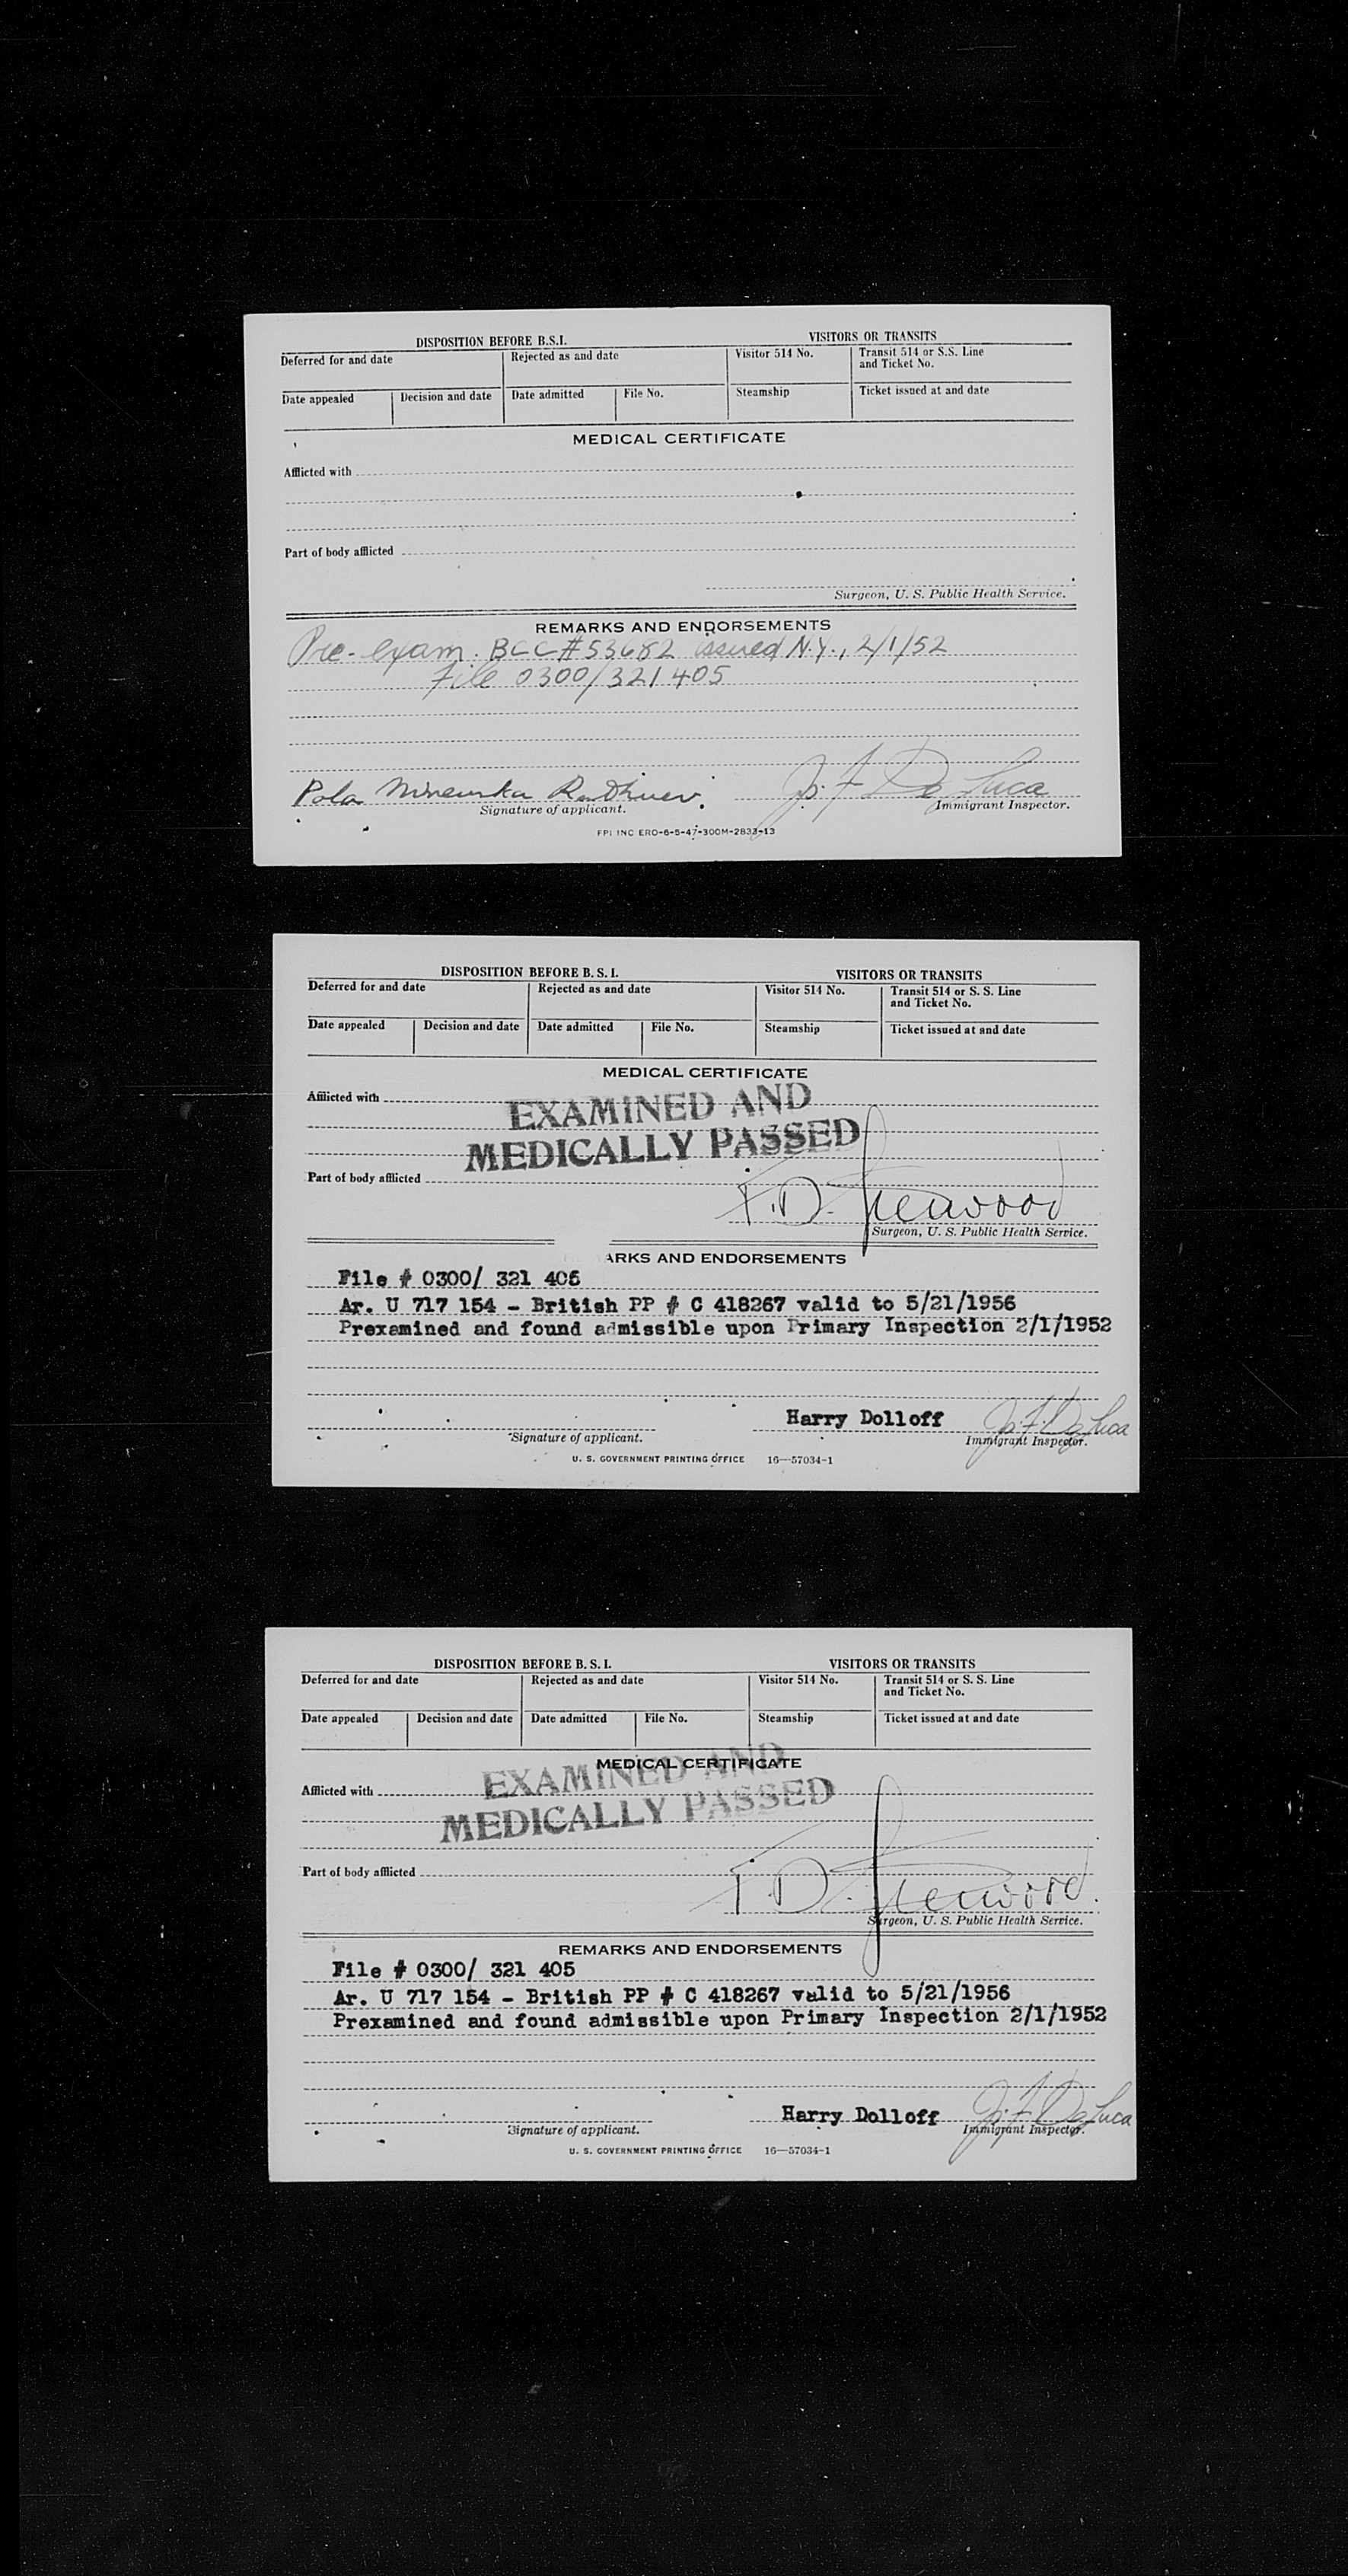 DISPOSITION BEFORE B.S.I. VISITORS OR TRANSITS
Deferred for and date Rejected as and date Visitor 514 No. Transit 514 or S.S. Line
and Ticket No.
Date appealed Decision and date Date admitted File No. Steamship Ticket issued at and date
MEDICAL CERTIFICATE
Afflicted with
Part of body afflicted
Surgeon, U. S. Public Health Service.
REMARKS AND ENDORSEMENTS
Pre-exam. BCC #53682 issued N.Y., 2/1/52
File 0300/321405
Pola J. F. De Luca
Signature of applicant. Immigrant Inspector.
FPI INC ERO-6-5-47-300M-2833-13
DISPOSITION BEFORE B. S. I. VISITORS OR TRANSITS
Deferred for and date Rejected as and date Visitor 514 No. Transit 514 or S. S. Line
and Ticket No.
Date appealed Decision and date Date admitted File No. Steamship Ticket issued at and date
MEDICAL CERTIFICATE
Afflicted with
EXAMINED AND
MEDICALLY PASSED
Part of body afflicted
F. D.
Surgeon, U. S. Public Health Service.
ARKS AND ENDORSEMENTS
File # 0300/ 321 405
Ar. U 717 154 - British PP # C 418267 valid to 5/21/1956
Prexamined and found admissible upon Primary Inspection 2/1/1952
Harry Dolloff J. F. De Luca
Signature of applicant. Immigrant Inspector.
U. S. GOVERNMENT PRINTING OFFICE 16—57034-1
DISPOSITION BEFORE B. S. I. VISITORS OR TRANSITS
Deferred for and date Rejected as and date Visitor 514 No. Transit 514 or S. S. Line
and Ticket No.
Date appealed Decision and date Date admitted File No. Steamship Ticket issued at and date
MEDICAL CERTIFICATE
EXAMINED AND
Afflicted with
MEDICALLY PASSED
Part of body afflicted
F. D.
Surgeon, U. S. Public Health Service.
REMARKS AND ENDORSEMENTS
File # 0300/ 321 405
Ar. U 717 154 - British PP # C 418267 valid to 5/21/1956
Prexamined and found admissible upon Primary Inspection 2/1/1952
Harry Dolloff J. F. De Luca
Signature of applicant. Immigrant Inspector.
U. S. GOVERNMENT PRINTING OFFICE 16—57034-1